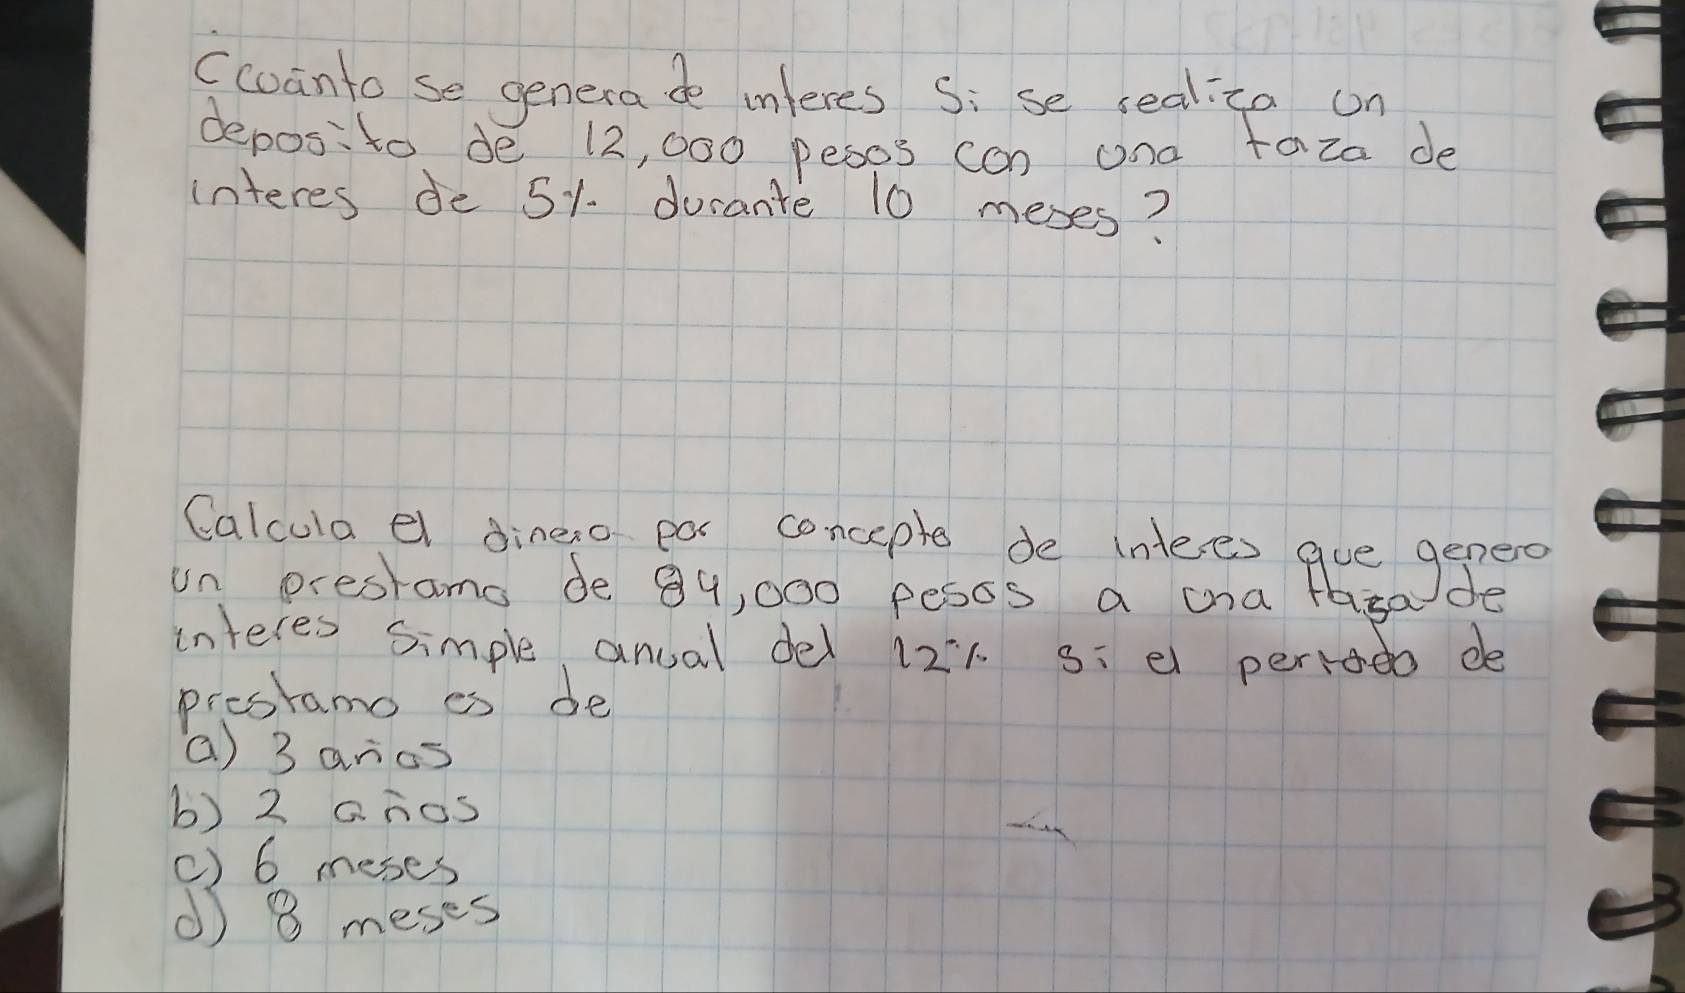 ¿cuánto se genera de interes si se realiza un
deposito de 12,000 pesos con una taza de
interes de 5% durante 10 meses?
Calcula el dinero por concepto de interes que genero
un prestamo de 84,000 pesos a una tasa de
interes simple anual del 12% si el periodo de
prestamo es de
a) 3 años
b) 2 años
c) 6 meses
d) 8 meses